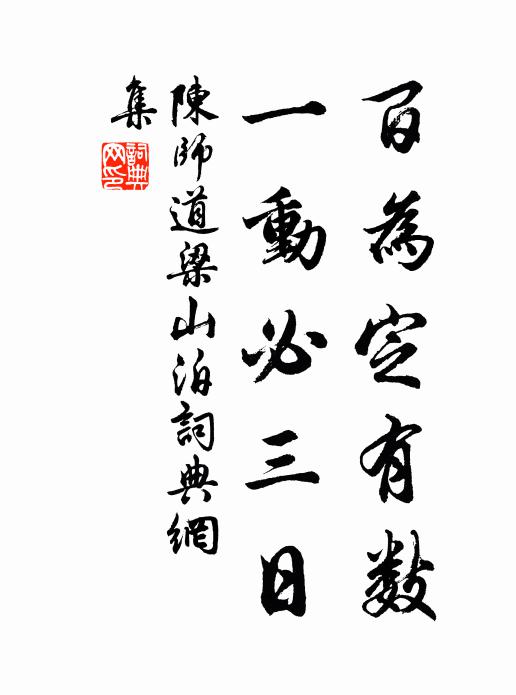 百為定有數
一動必三日
陳師道梁山泊詞典網
集
詞典網印